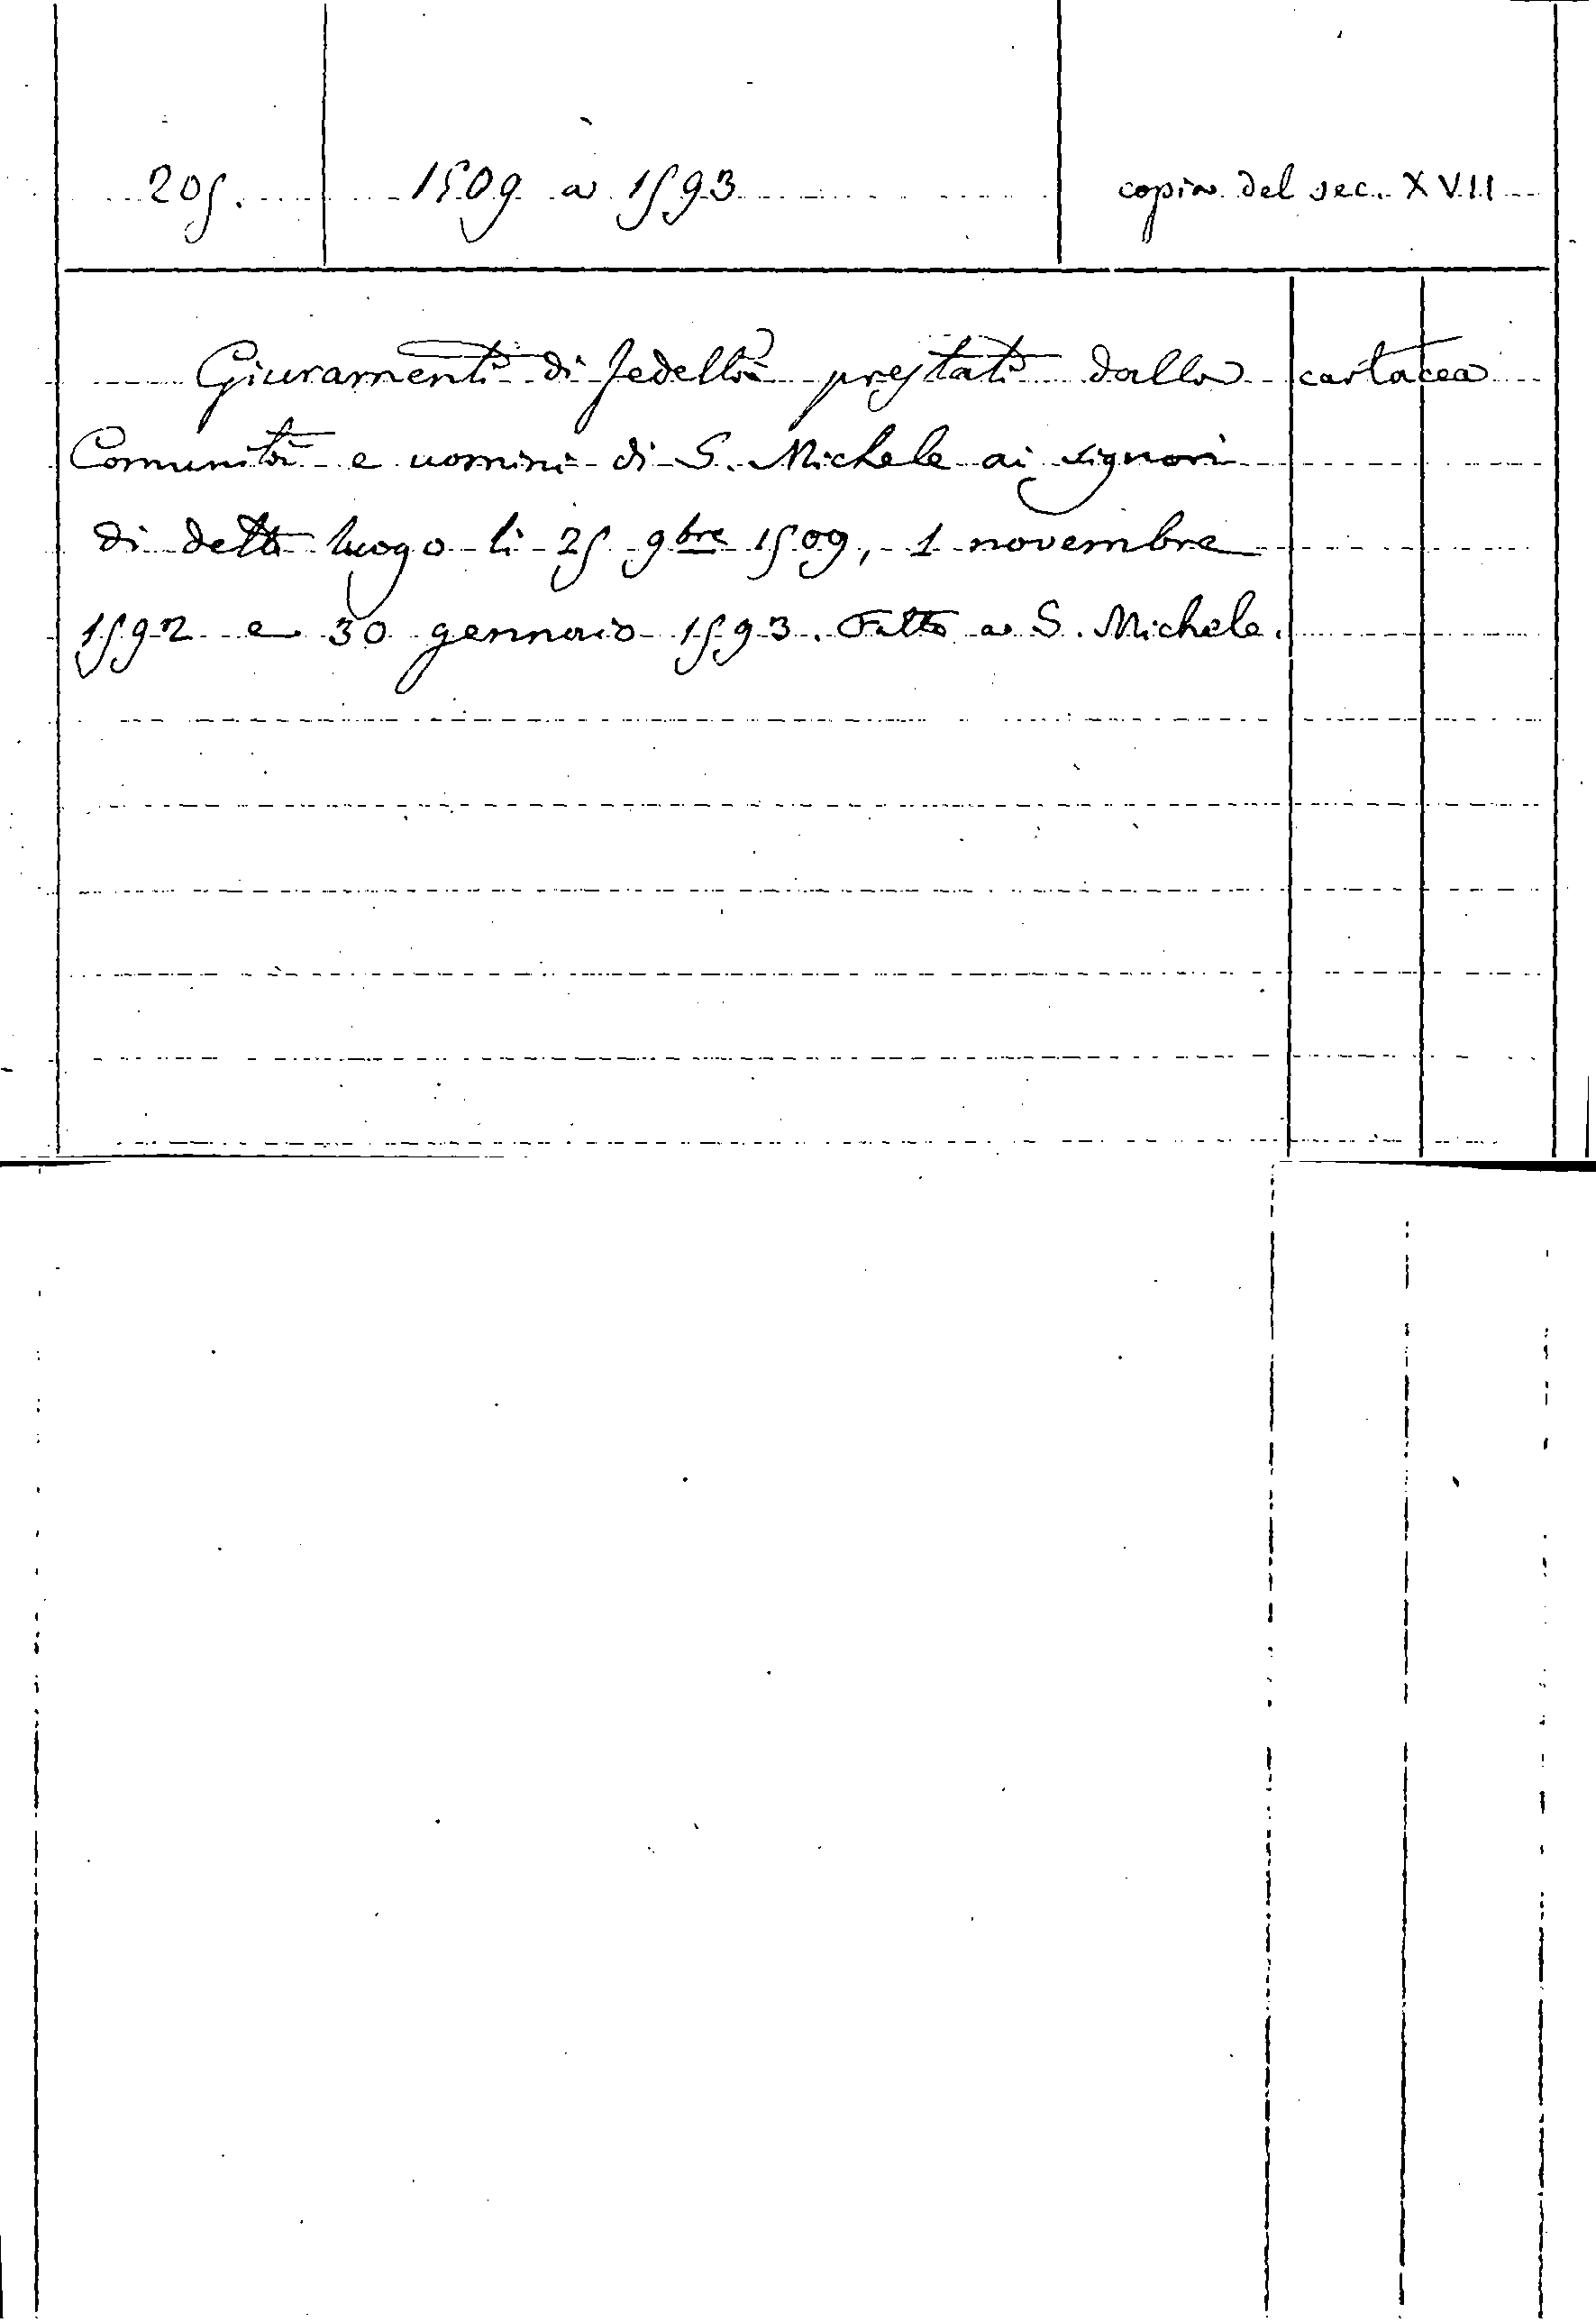 205. 1509 a 1593 copia del sec. XVII
Giuramenti di fedeltà prestati dalla cartacea
Comunità e uomini di S. Michele ai signori
di detto luogo li 25 9bre 1509, 1 novembre
1592 e 30 gennaio 1593. Fatto a S. Michele.